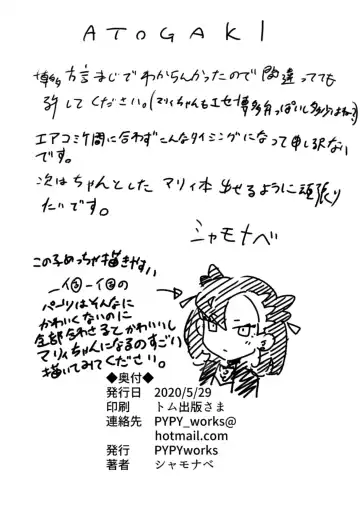 ATOGAKI
博多方言まじでわからんかったので間違ってても
許してください。(マリィちゃんもエセ博多弁っぽいし多少はね?)
エアコミケ間に合わずこんなタイミングになって申し訳ない
です。
次はちゃんとしたマリィ本出せるように頑張り
たいです。
シャモナベ
この子めっちゃ描きやすい
一個一個の
パーツはそんなに
かわいくないのに
全部合わさるとかわいいし
マリィちゃんになるのすごい
描いてみてください。
◆奥付◆
発行日 2020/5/29
印刷 トム出版さま
連絡先 PYPY_works@
hotmail.com
発行 PYPYworks
著者 シャモナベ